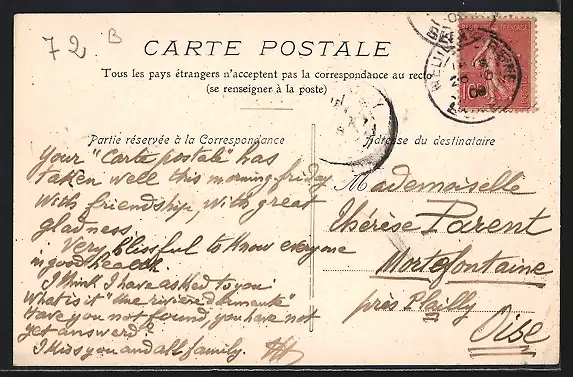 72 B
CARTE POSTALE
Tous les pays étrangers n'acceptent pas la correspondance au recto
(se renseigner à la poste)
Partie réservée à la Correspondance
Your "Carte postale" has
taken well this morning friday
with friendship, with great
gladness.
Very blissful to know everyone
in good health
I think I have asked to you
what is it "une rivière
have you not found, you have not
yet answerd?
I kiss you and all family.
Adresse du destinataire
Mademoiselle
Thérèse Parent
Mortefontaine
près Plailly
Oise
10